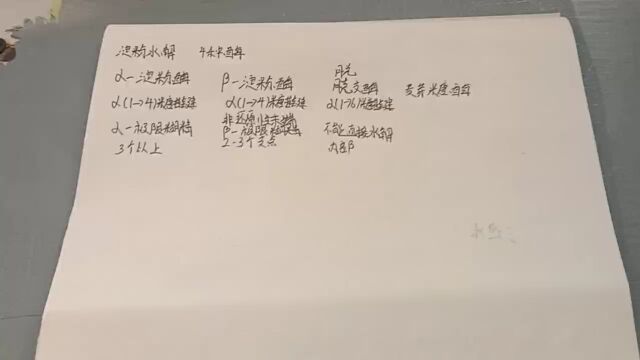 淀粉水解 4种酶
α-淀粉酶 β-淀粉酶 脱支酶 麦芽糖酶
α(1→4)糖苷键 α(1→4)糖苷键 α(1→6)糖苷键
非还原性末端
α-极限糊精 β-极限糊精 不能直接水解
3个以上 2-3个支点 内部